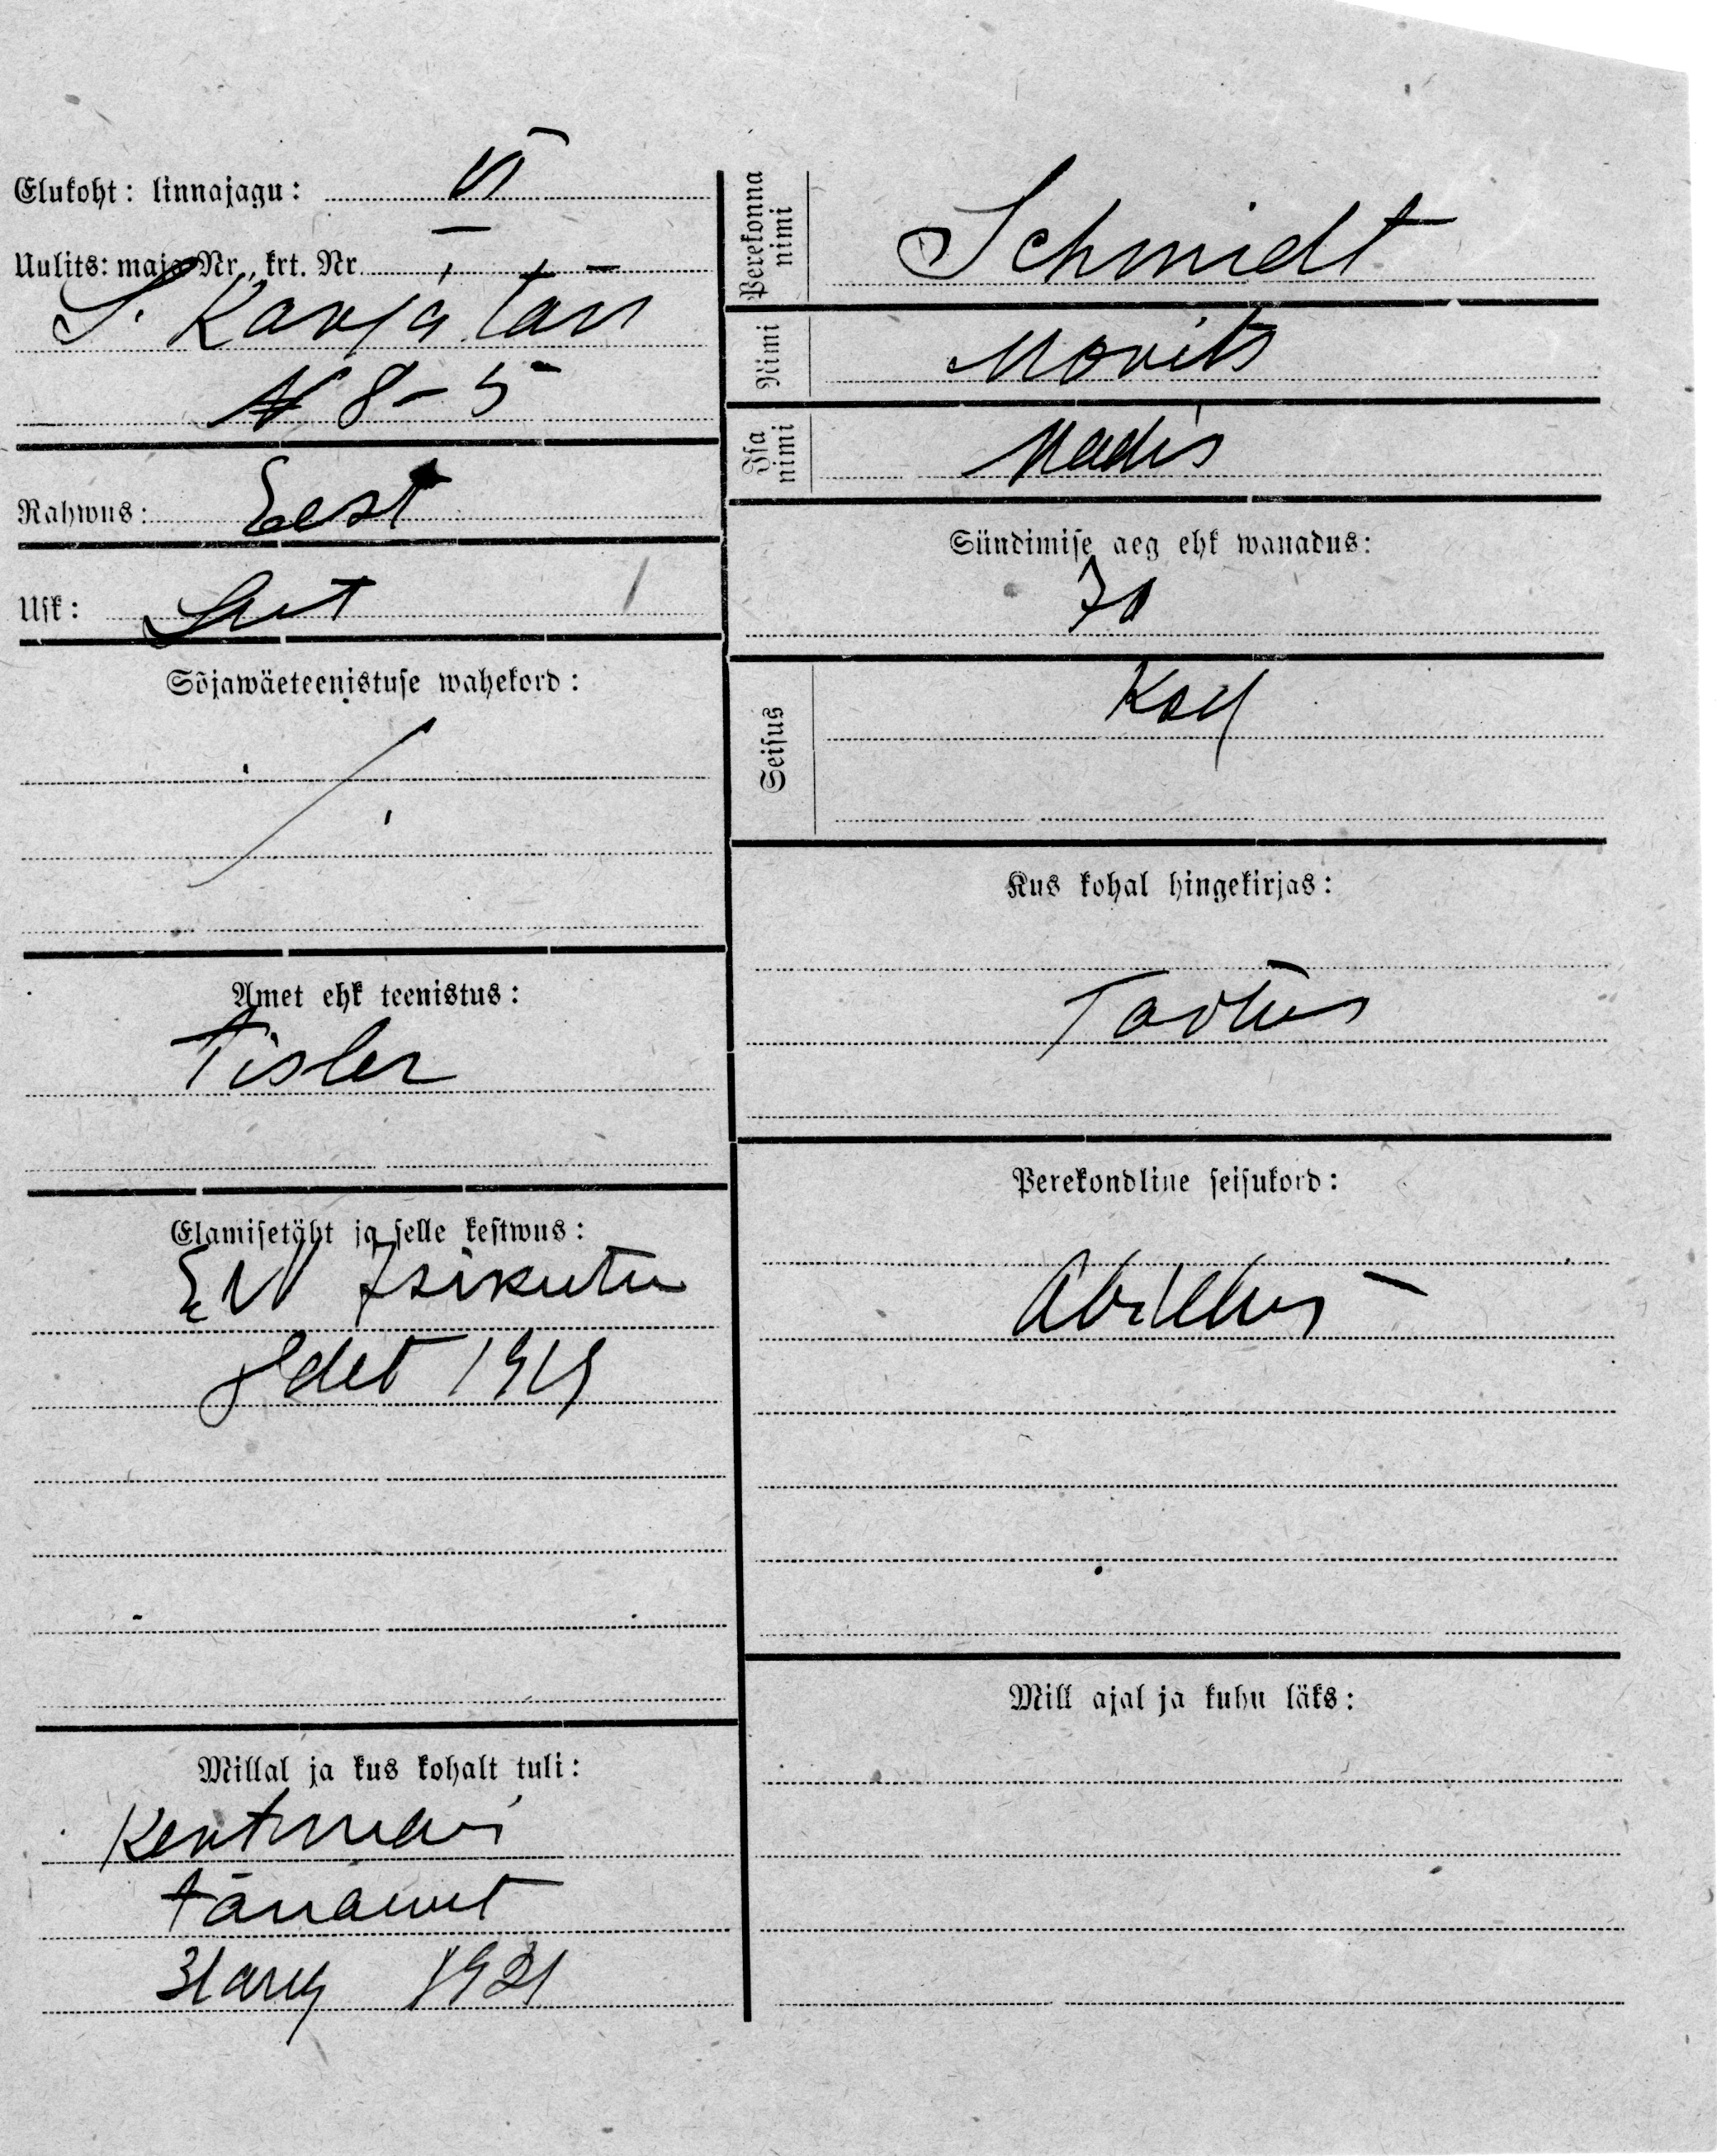 Elukoht: linnajagu: VI
Uulits: maja Nr., krt. Nr.
S. Karja tän
N 8-5
Rahwus: Eest
Usk: Lut
Sõjawäeteenistuse wahekord:
Amet ehk teenistus:
Tisler
Elamisetäht ja selle kestwus:
EW Isikutu
1919
Millal ja kus kohalt tuli:
Kentmani
tänawat
31 aug 1921
Perekonna nimi
Schmidt
Nimi
Morits
Isa nimi
Madis
Sündimise aeg ehk wanadus:
70
Seisus
Kus kohal hingekirjas:
Tartus
Perekondline seisukord:
Abielus
Mill ajal ja kuhu läks: